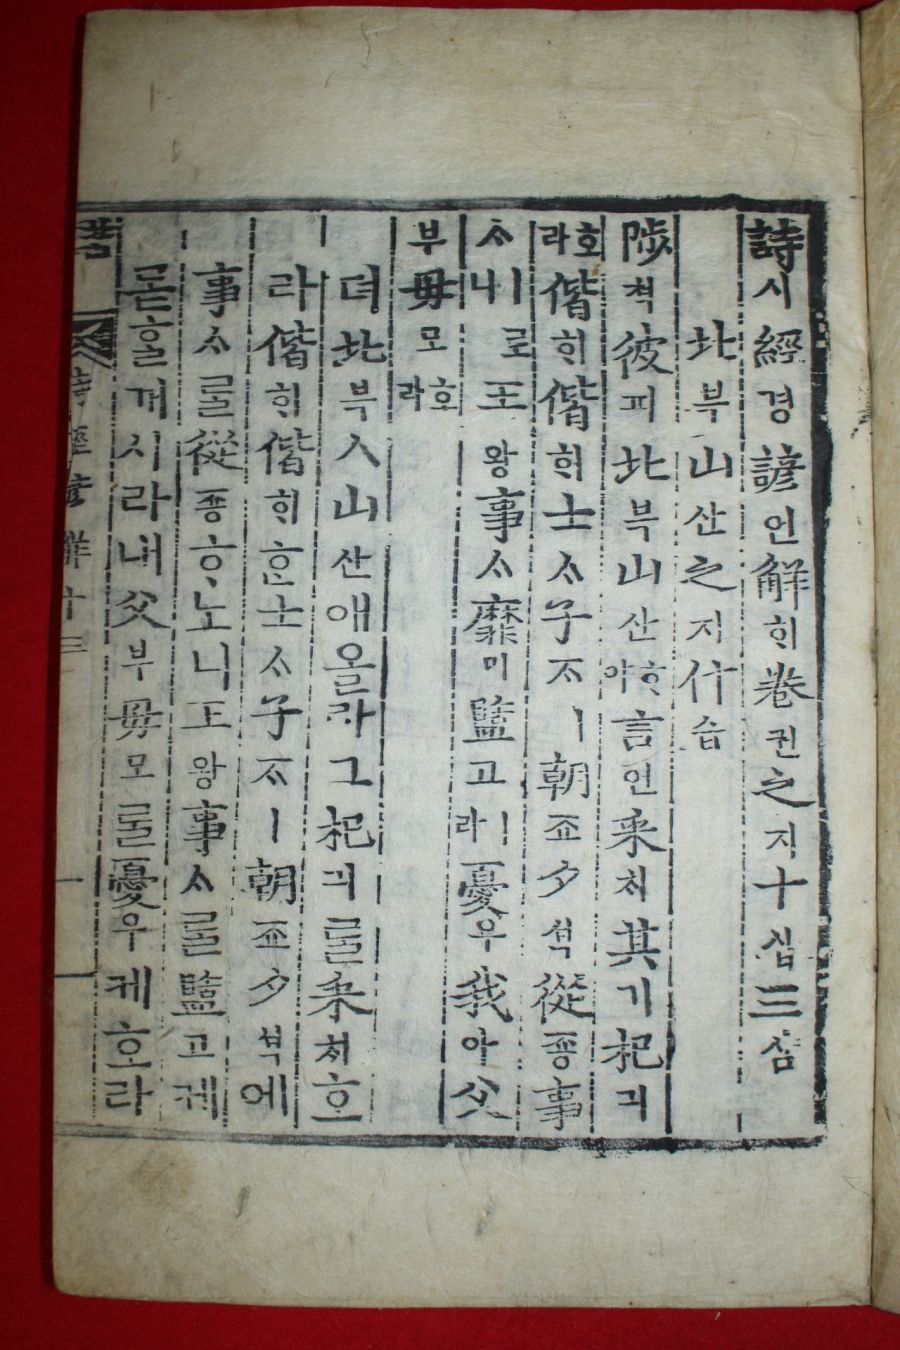 詩시經경諺언解ᄒᆡ卷권之지十십三삼
北븍山산之지什습
陟쳑彼피北븍山산ᄒᆞ야言언采ᄎᆡ其기杞긔
호라偕ᄒᆡ偕ᄒᆡ士ᄉᆞ子ᄌᆞㅣ朝죠夕셕從죵事
ᄉᆞㅣ로니王왕事ᄉᆞ靡미盬고ㅣ라憂우我아父
부母모호라
뎌北븍ㅅ山산애올라그杞긔ᄅᆞᆯ采ᄎᆡ호
라偕ᄒᆡ偕ᄒᆡᄒᆞᆫ士ᄉᆞ子ᄌᆞㅣ朝죠夕셕에
事ᄉᆞᄅᆞᆯ從죵ᄒᆞ노니王왕事ᄉᆞᄅᆞᆯ盬고케
몯ᄒᆞᆯᄭᅥ시라내父부母모ᄅᆞᆯ憂우케호라
詩經諺解十三 一